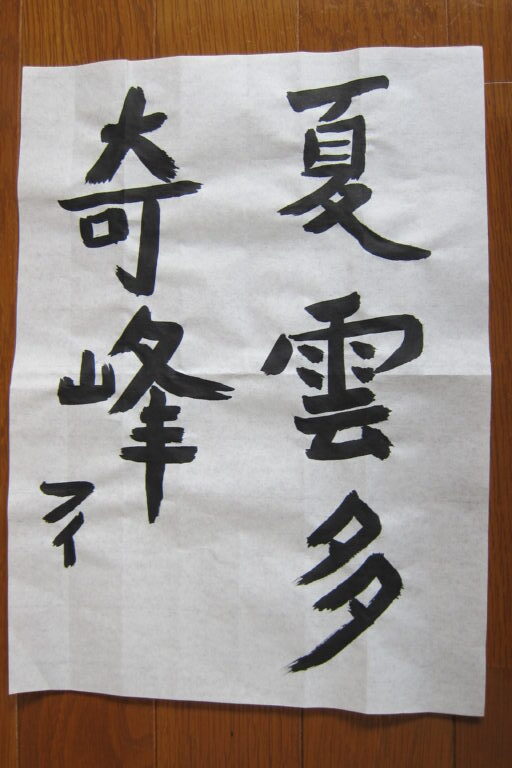 夏雲多
奇峰
フイ